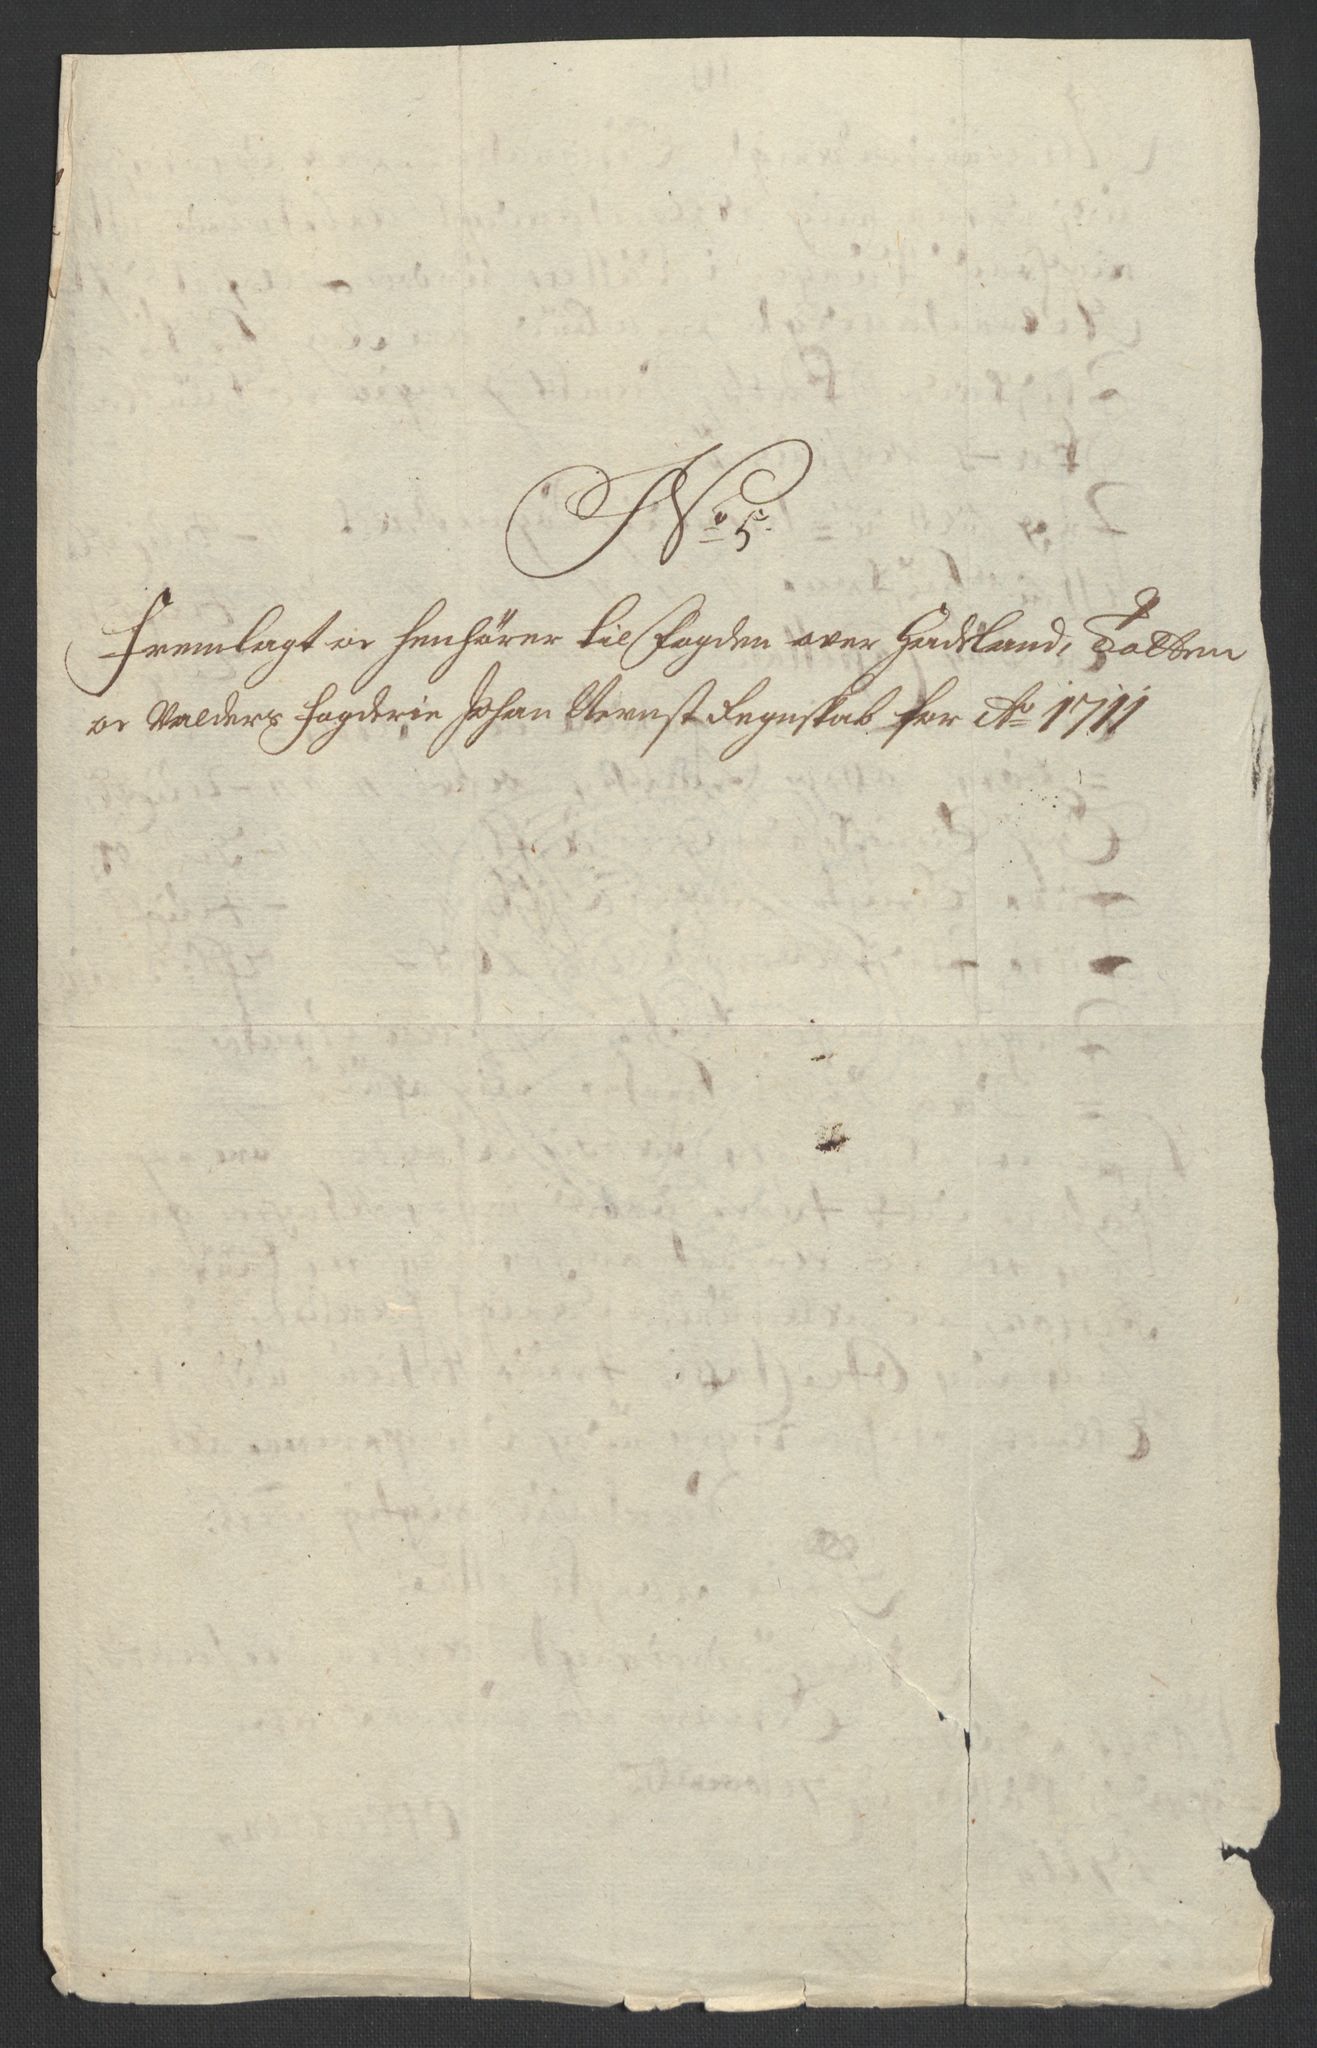 No 5.
Fremlagt oc henhörer til Fogden over Hadeland, Totten
oc Valders fogderie Johan Vernst Regnskab for Ao 1711